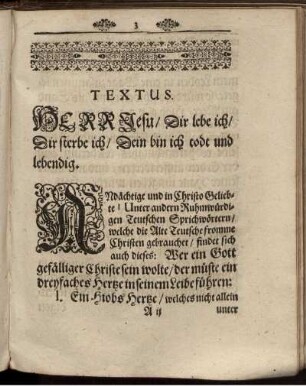 3
TEXTUS.
HERR Jesu / Dir lebe ich /
Dir sterbe ich / Dein bin ich todt und
lebendig.
ANdächtige und in Christo Gelieb-
te! Unter andern Ruhmwürdi-
gen Teutschen Sprichwörtern /
welche die Alte Teutsche fromme
Christen gebrauchet / findet sich
auch dieses: Wer ein Gott
gefälliger Christe sein wolte / der müste ein
dreyfaches Hertze in seinem Leibe führen:
1. Ein Hiobs Hertze / welches nicht allein
A ij
unter